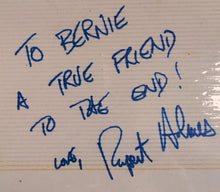 TO BERNIE
A TRUE FRIEND
TO THE END!
LOVE, Rupert Holmes